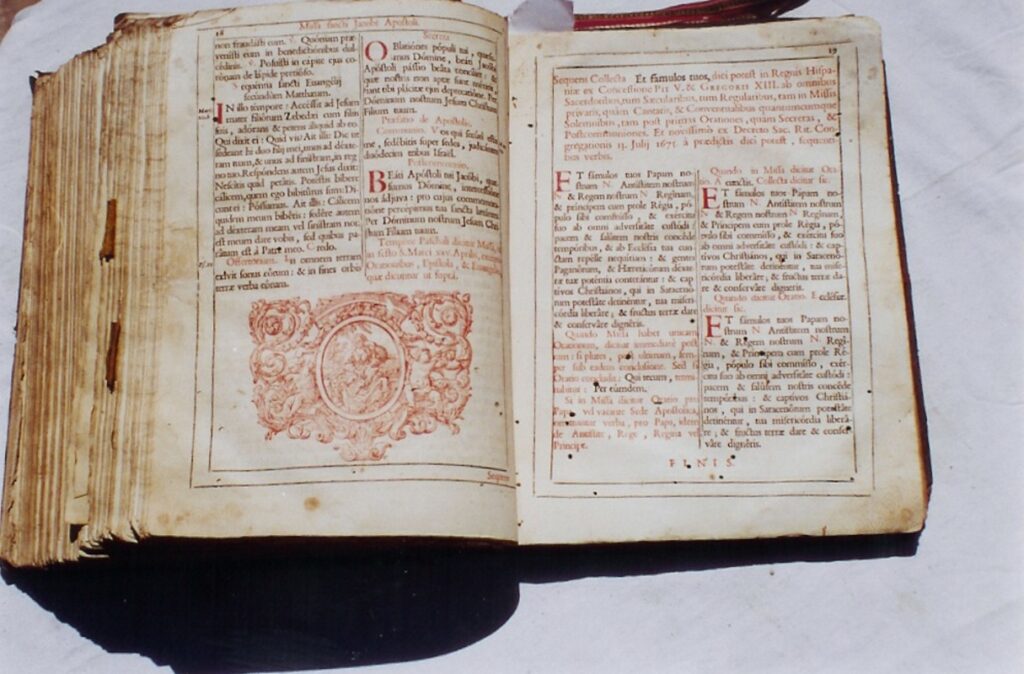 18
Missa sancti Jacobi Apostoli.
non fraudasti eum. ℣. Quoniam præ-
venisti eum in benedictionibus dul-
cédinis. ℣. Posuisti in cápite ejus co-
rónam de lápide pretióso.
Sequentia sancti Evangelij
secundùm Matthæum.
IN illo témpore: Accessit ad Jesum
mater filiórum Zebedæi cum filiis
suis, adórans & petens áliquid ab eo.
Qui dixit ei: Quid vis? Ait illi: Dic ut
sédeant hi duo filij mei, unus ad déxte-
ram tuam, & unus ad sinistram, in reg-
no tuo. Respóndens autem Jesus dixit:
Nescitis quid petátis. Potestis bíbere
cálicem, quem ego bibitúrus sum? Di-
cunt ei: Póssumus. Ait illis: Cálicem
quidem meum bibétis: sedére autem
ad déxteram meam vel sinistram non
est meum dare vobis, sed quibus pa-
rátum est à Patre meo. Credo.
Offertorium. In omnem terram
exívit sonus eórum: & in fines orbis
terræ verba eórum.
Secreta.
OBlatiónes pópuli tui, quæsu-
mus Dómine, beáti Jacóbi
Apóstoli pássio beáta concíliet: &
quæ nostris non apta sunt méritis,
fiant tibi plácita ejus deprecatióne. Per
Dóminum nostrum Jesum Christum
Fílium tuum.
Præfatio de Apostolis.
Communio. Vos qui secúti estis
me, sedébitis super sedes, judicántes
duódecim tribus Israël.
Postcommunio.
BEáti Apóstoli tui Jacóbi, quæ-
sumus Dómine, intercessióne
nos ádjuva: pro cujus commemora-
tióne percépimus tua sancta lætántes.
Per Dóminum nostrum Jesum Chri-
stum Fílium tuum.
Tempore Paschali dicitur Missa,
in festo S. Marci xxv. Aprilis, exceptis
Orationibus, Epistola, & Evangelio,
quæ dicuntur ut suprá.
Sequens
19
Sequens Collecta Et fámulos tuos, dici potest in Regnis Hispa-
niæ ex Concessione PII V. & GREGORII XIII. ab omnibus
Sacerdotibus, tam Sæcularibus, tum Regularibus, tam in Missis
privatis, quàm Cantatis, & Conventualibus quantumcumque
Solemnibus, tam post primas Orationes, quam Secretas, &
Postcommuniones. Et novissimè ex Decreto Sac. Rit. Con-
gregationis 13. Julij 1675. à prædictis dici potest, sequenti-
bus verbis.
ET fámulos tuos Papam no-
strum N. Antístitem nostrum
N. & Regem nostrum N. Regínam,
& príncipem cum prole Régia, pó-
pulo sibi commísso, & exércitu
suo ab omni adversitáte custódi:
pacem & salútem nostris concéde
tempóribus: & ab Ecclésia tua cun-
ctam repélle nequítiam: & gentes
Paganórum, & Hæreticórum déxte-
ræ tuæ poténtia conterántur: & cap-
tívos Christiános, qui in Saracenó-
rum potestáte detinéntur, tua miseri-
córdia liberáre; & fructus terræ dare
& conserváre dignéris.
Quando Missa habet unicam
Orationem, dicitur immediatè post
eam: si plures, post ultimam, sem-
per sub eadem conclusione. Sed si
Oratio concludit: Qui tecum, termi-
nabitur: Per eúmdem.
Si in Missa dicitur Oratio pro
Papa, vel vacante Sede Apostolica,
omittuntur verba, pro Papa, idem
de Antistite, Rege, Regina vel
Principe.
Quando in Missa dicitur Ora-
tio A cunctis. Collecta dicitur sic.
ET fámulos tuos Papam no-
strum N. Antístitem nostrum
N. & Regem nostrum N. Regínam,
& Príncipem cum prole Régia, pó-
pulo sibi commísso, & exércitu suo
ab omni adversitáte custódi: & cap-
tívos Christiános, qui in Saracenó-
rum potestáte detinéntur, tua mise-
ricórdia liberáre; & fructus terræ da-
re & conserváre dignéris.
Quando dicitur Oratio. Ecclésiæ.
dicitur sic.
ET fámulos tuos Papam no-
strum N. Antístitem nostrum
N. & Regem nostrum N. Regí-
nam, & Príncipem cum prole Ré-
gia, pópulo sibi commísso, exér-
citu suo ab omni adversitáte custódi:
pacem & salútem nostris concéde
tempóribus: & captívos Christiá-
nos, qui in Saracenórum potestáte
detinéntur, tua misericórdia liberá-
re; & fructus terræ dare & conser-
váre dignéris.
FINIS.